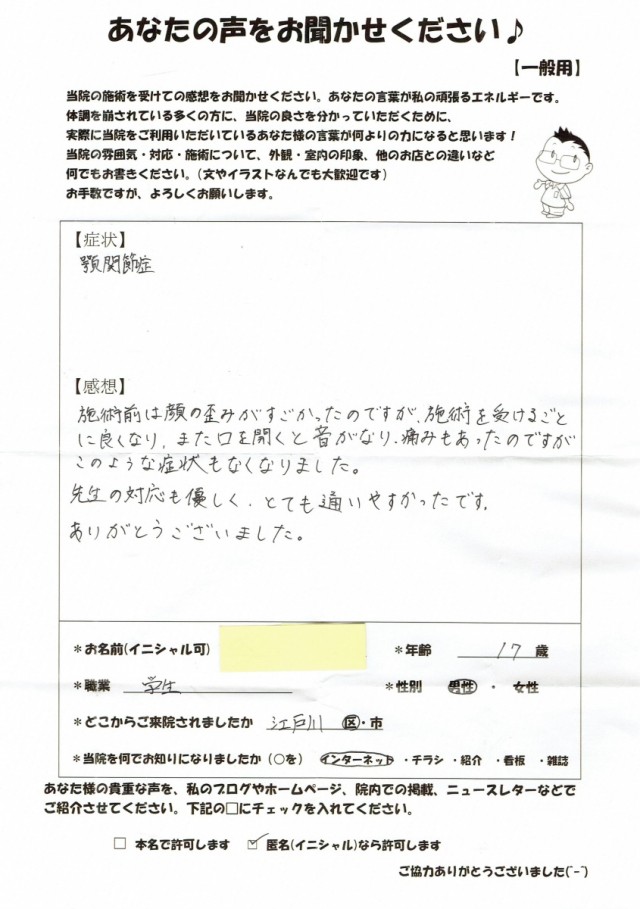 あなたの声をお聞かせください♪
【一般用】
当院の施術を受けての感想をお聞かせください。あなたの言葉が私の頑張るエネルギーです。
体調を崩されている多くの方に、当院の良さを分かっていただくために、
実際に当院をご利用いただいているあなた様の言葉が何よりの力になると思います！
当院の雰囲気・対応・施術について、外観・室内の印象、他のお店との違いなど
何でもお書きください。(文やイラストなんでも大歓迎です)
お手数ですが、よろしくお願いします。
【症状】
顎関節症
【感想】
施術前は顔の歪みがすごかったのですが、施術を受けるごと
に良くなり、また口を開くと音がなり、痛みもあったのですが
このような症状もなくなりました。
先生の対応も優しく、とても通いやすかったです。
ありがとうございました。
*お名前(イニシャル可)
*年齢 17 歳
*職業 学生
*性別 男性 ・ 女性
*どこからご来院されましたか 江戸川 区・市
*当院を何でお知りになりましたか (○を) インターネット ・チラシ ・紹介 ・看板 ・雑誌
あなた様の貴重な声を、私のブログやホームページ、院内での掲載、ニュースレターなどで
ご紹介させてください。下記の□にチェックを入れてください。
□ 本名で許可します ☑ 匿名(イニシャル)なら許可します
ご協力ありがとうございました(^-^)